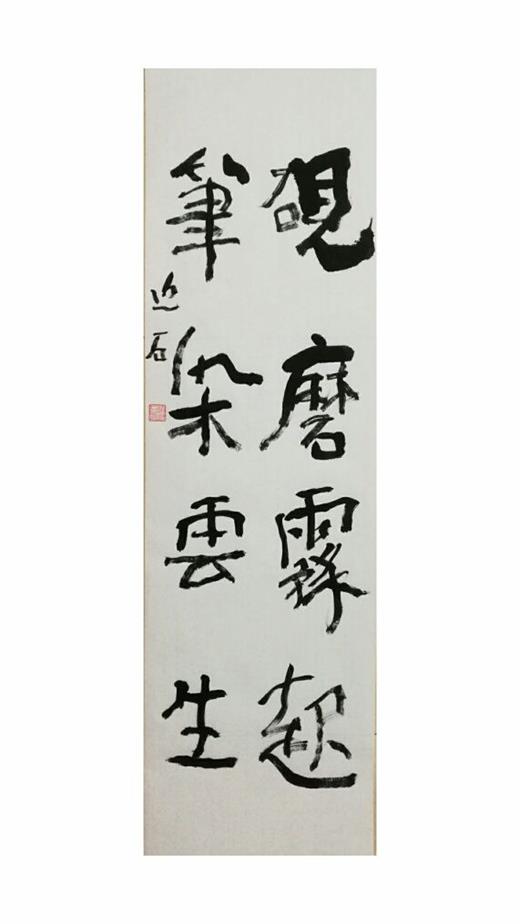 硯磨霧起
筆染雲生
近石